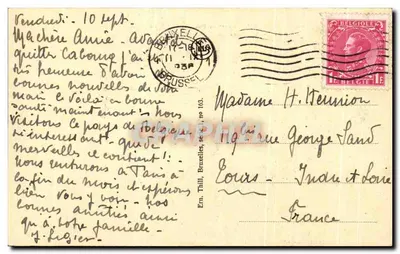 Vendredi - 10 sept.
Ma chère Amie - Avant
quitter Cabourg j'ai
été heureuse d'avoir
bonnes nouvelles de
mari le voilà en bonne
santé maintenant. Nous
visitons le pays de Belgique
si intéressant - que de
merveilles il contient!
Nous rentrerons à Paris à
la fin du mois et espérons
bien vous y voir - nos
bonnes amitiés ainsi
qu'à votre famille -
BRUXELLES
BRUSSEL
BELGIQUE
1F
Ern. Thill, Bruxelles, no 163.
Madame H. Meunion
149 rue George Sand
Tours - Indre et Loire
France